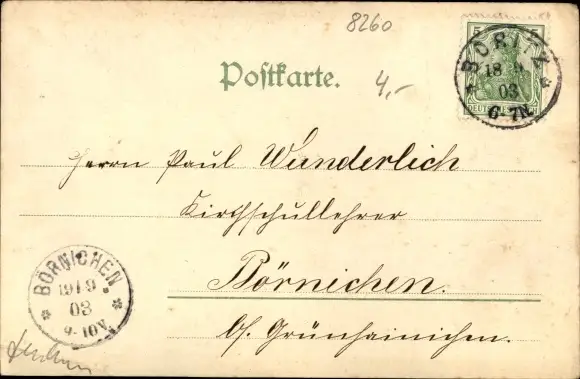 8260
5 5
BORITZ
18 9
03
6-7N.
Postkarte.
4,-
Herrn Paul Wunderlich
Kirchschullehrer
Börnichen.
b/. Grünhainichen.
BÖRNICHEN
19 9
03
9-10V.